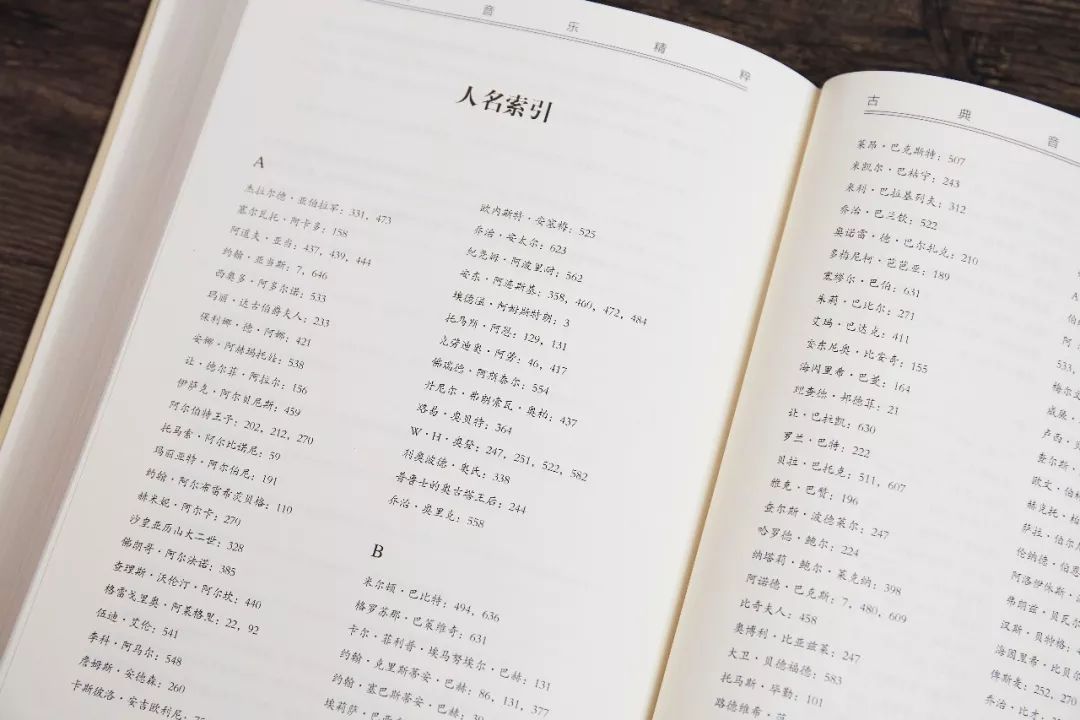 音乐精粹
人名索引
A
杰拉尔德·亚伯拉罕：331, 473
塞尔瓦托·阿卡多：158
阿道夫·亚当：437, 439, 444
约翰·亚当斯：7, 646
西奥多·阿多尔诺：533
玛丽·达古伯爵夫人：233
保利娜·德·阿娜：421
安娜·阿赫玛托娃：538
让·德尔菲·阿拉尔：156
伊萨克·阿尔贝尼斯：459
阿尔伯特王子：202, 212, 270
托马索·阿尔比诺尼：59
玛丽亚特·阿尔伯尼：191
约翰·阿尔布雷希茨贝格：110
赫米妮·阿尔卡：270
沙皇亚历山大二世：328
佛朗哥·阿尔法诺：385
查理斯·沃伦汀·阿尔坎：440
格雷戈里奥·阿莱格里：22, 92
伍迪·艾伦：541
李科·阿马尔：548
詹姆斯·安德森：260
卡斯彼洛·安吉欧利尼：
欧内斯特·安塞穆：525
乔治·安太尔：623
纪尧姆·阿波里耐：562
安东·阿连斯基：358, 460, 472, 484
埃德温·阿姆斯特朗：3
托马斯·阿恩：129, 131
克劳迪奥·阿劳：46, 417
佛瑞德·阿斯泰尔：554
丹尼尔·弗朗索瓦·奥柏：437
路易·奥贝特：364
W·H·奥登：247, 251, 522, 582
利奥波德·奥氏：338
普鲁士的奥古塔王后：244
乔治·奥里克：558
B
米尔顿·巴比特：494, 636
格罗苏那·巴策维奇：631
卡尔·菲利普·埃马努埃尔·巴赫：131
约翰·克里斯蒂安·巴赫：86, 131, 377
约翰·塞巴斯蒂安·巴赫：
埃莉萨·
古典音
莱昂·巴克斯特：507
米凯尔·巴枯宁：243
米利·巴拉基列夫：312
乔治·巴兰钦：522
奥诺雷·德·巴尔扎克：210
多梅尼柯·芭芭亚：189
塞缪尔·巴伯：631
朱莉·巴比尔：271
艾玛·巴达克：411
安东尼奥·比安奇：155
海因里希·巴菱：164
理查德·邦德菲：21
让·巴拉凯：630
罗兰·巴特：222
贝拉·巴托克：511, 607
雅克·巴赞：196
查尔斯·波德莱尔：247
哈罗德·鲍尔：224
纳塔莉·鲍尔·莱克纳：398
阿诺德·巴克斯：7, 480, 609
比奇夫人：458
奥博利·比亚兹莱：247
大卫·贝德福德：583
托马斯·毕勤：101
路德维希·
A
伯
阿
533,
梅尔
威廉·
卢西·
查尔斯·
欧文·伯
赫克托·柏
萨拉·伯尔
伦纳德·伯恩
阿洛伊休斯·
弗朗兹·贝瓦尔
汉斯·贝特格：
海因里希·比贝尔
俾斯麦：252, 270
乔治·比才